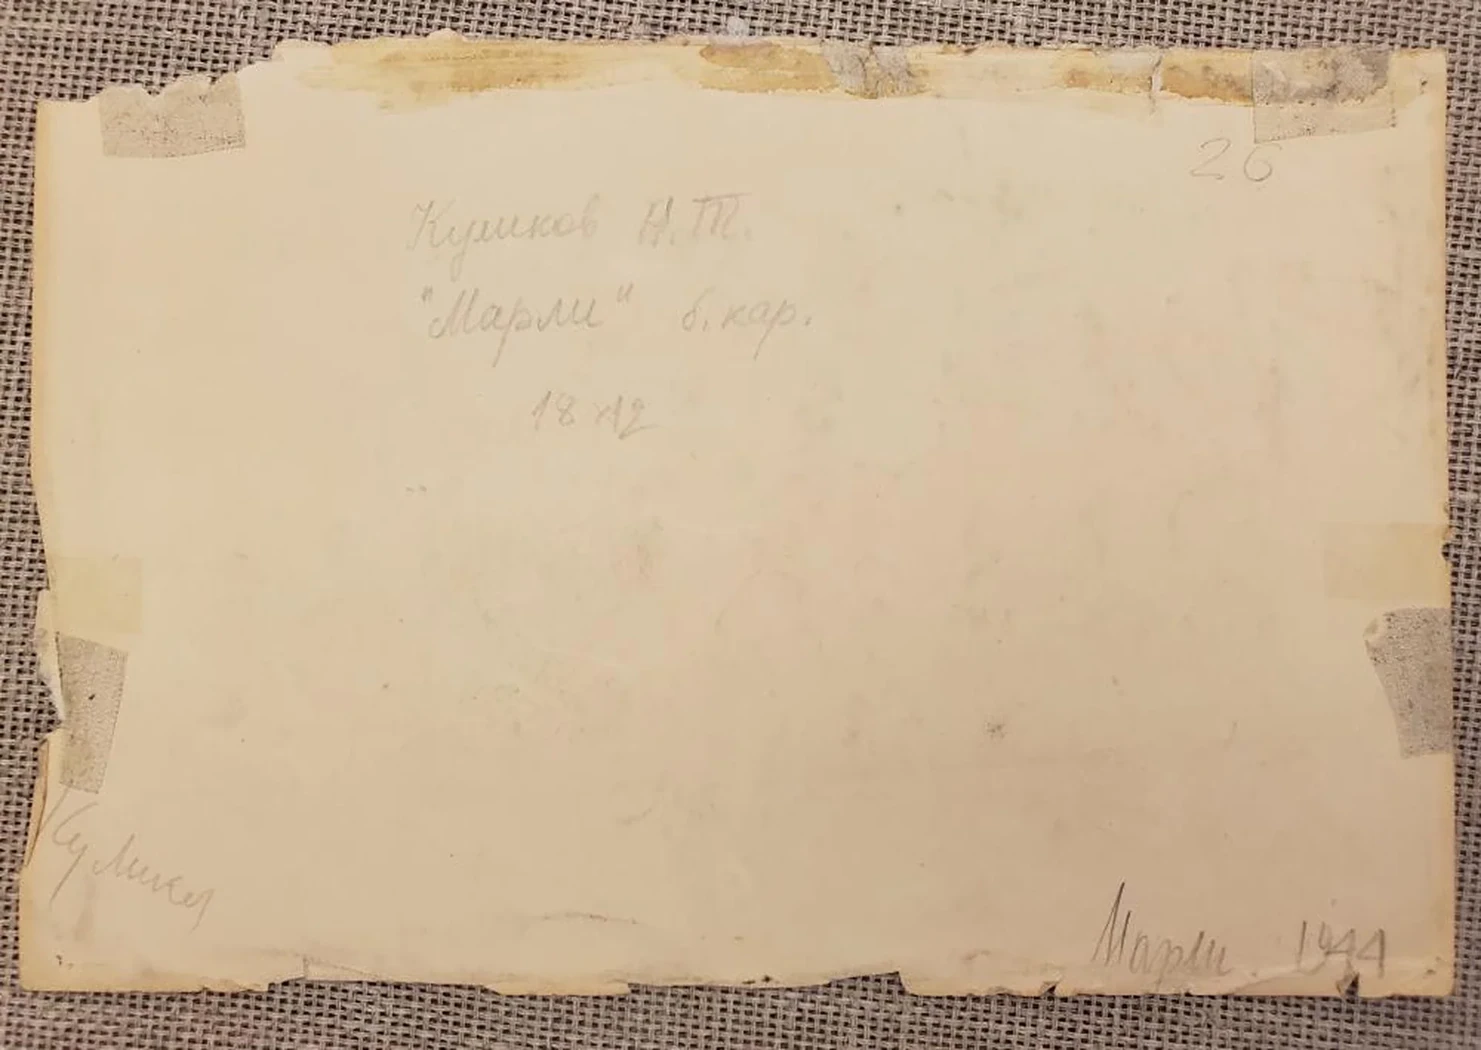 26
Куликов Н.Т.
"Марли" б.кар.
18 x12
Кулико
Марли. 1944